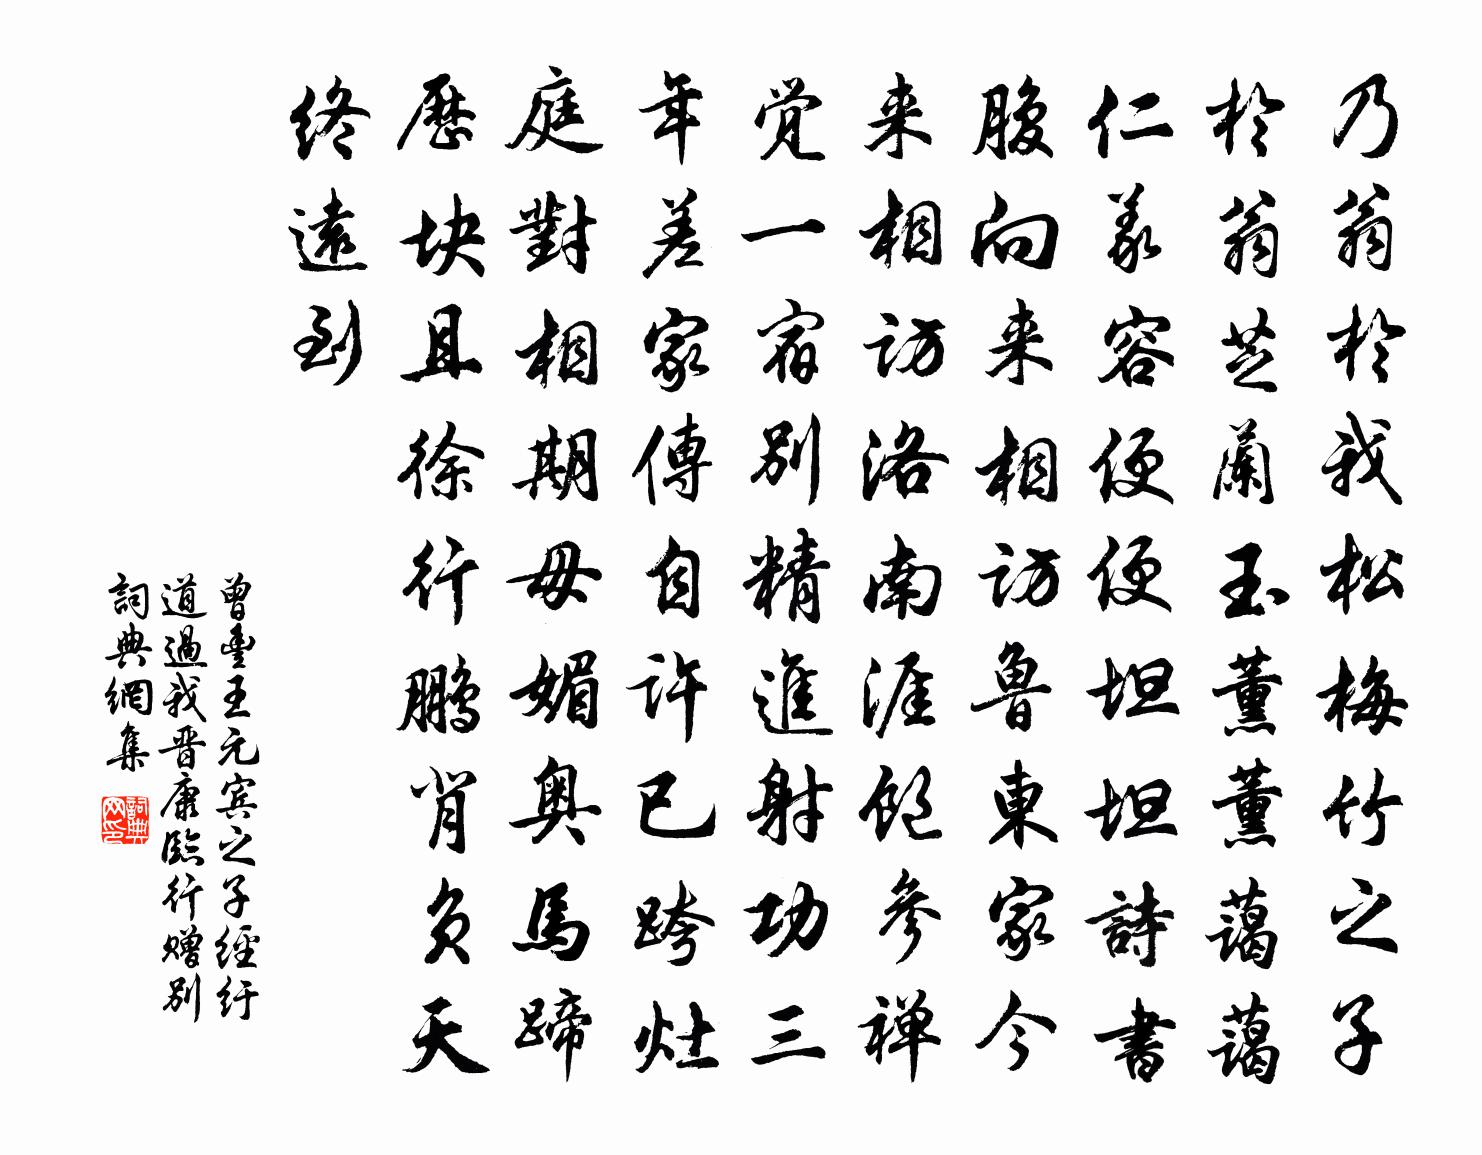 乃翁於我松梅竹之子
於翁芝蘭玉薰薰藹藹
仁義容便便坦坦詩書
腹向来相訪魯東家今
来相訪洛南涯飽參禅
覚一宿別精進射功三
年差家傳自許已跨灶
庭對相期毋媚奥馬蹄
歷块且徐行鹏背负天
终遠到
曾豊王元宾之子經紆
道過我晋康臨行赠别
詞典網集